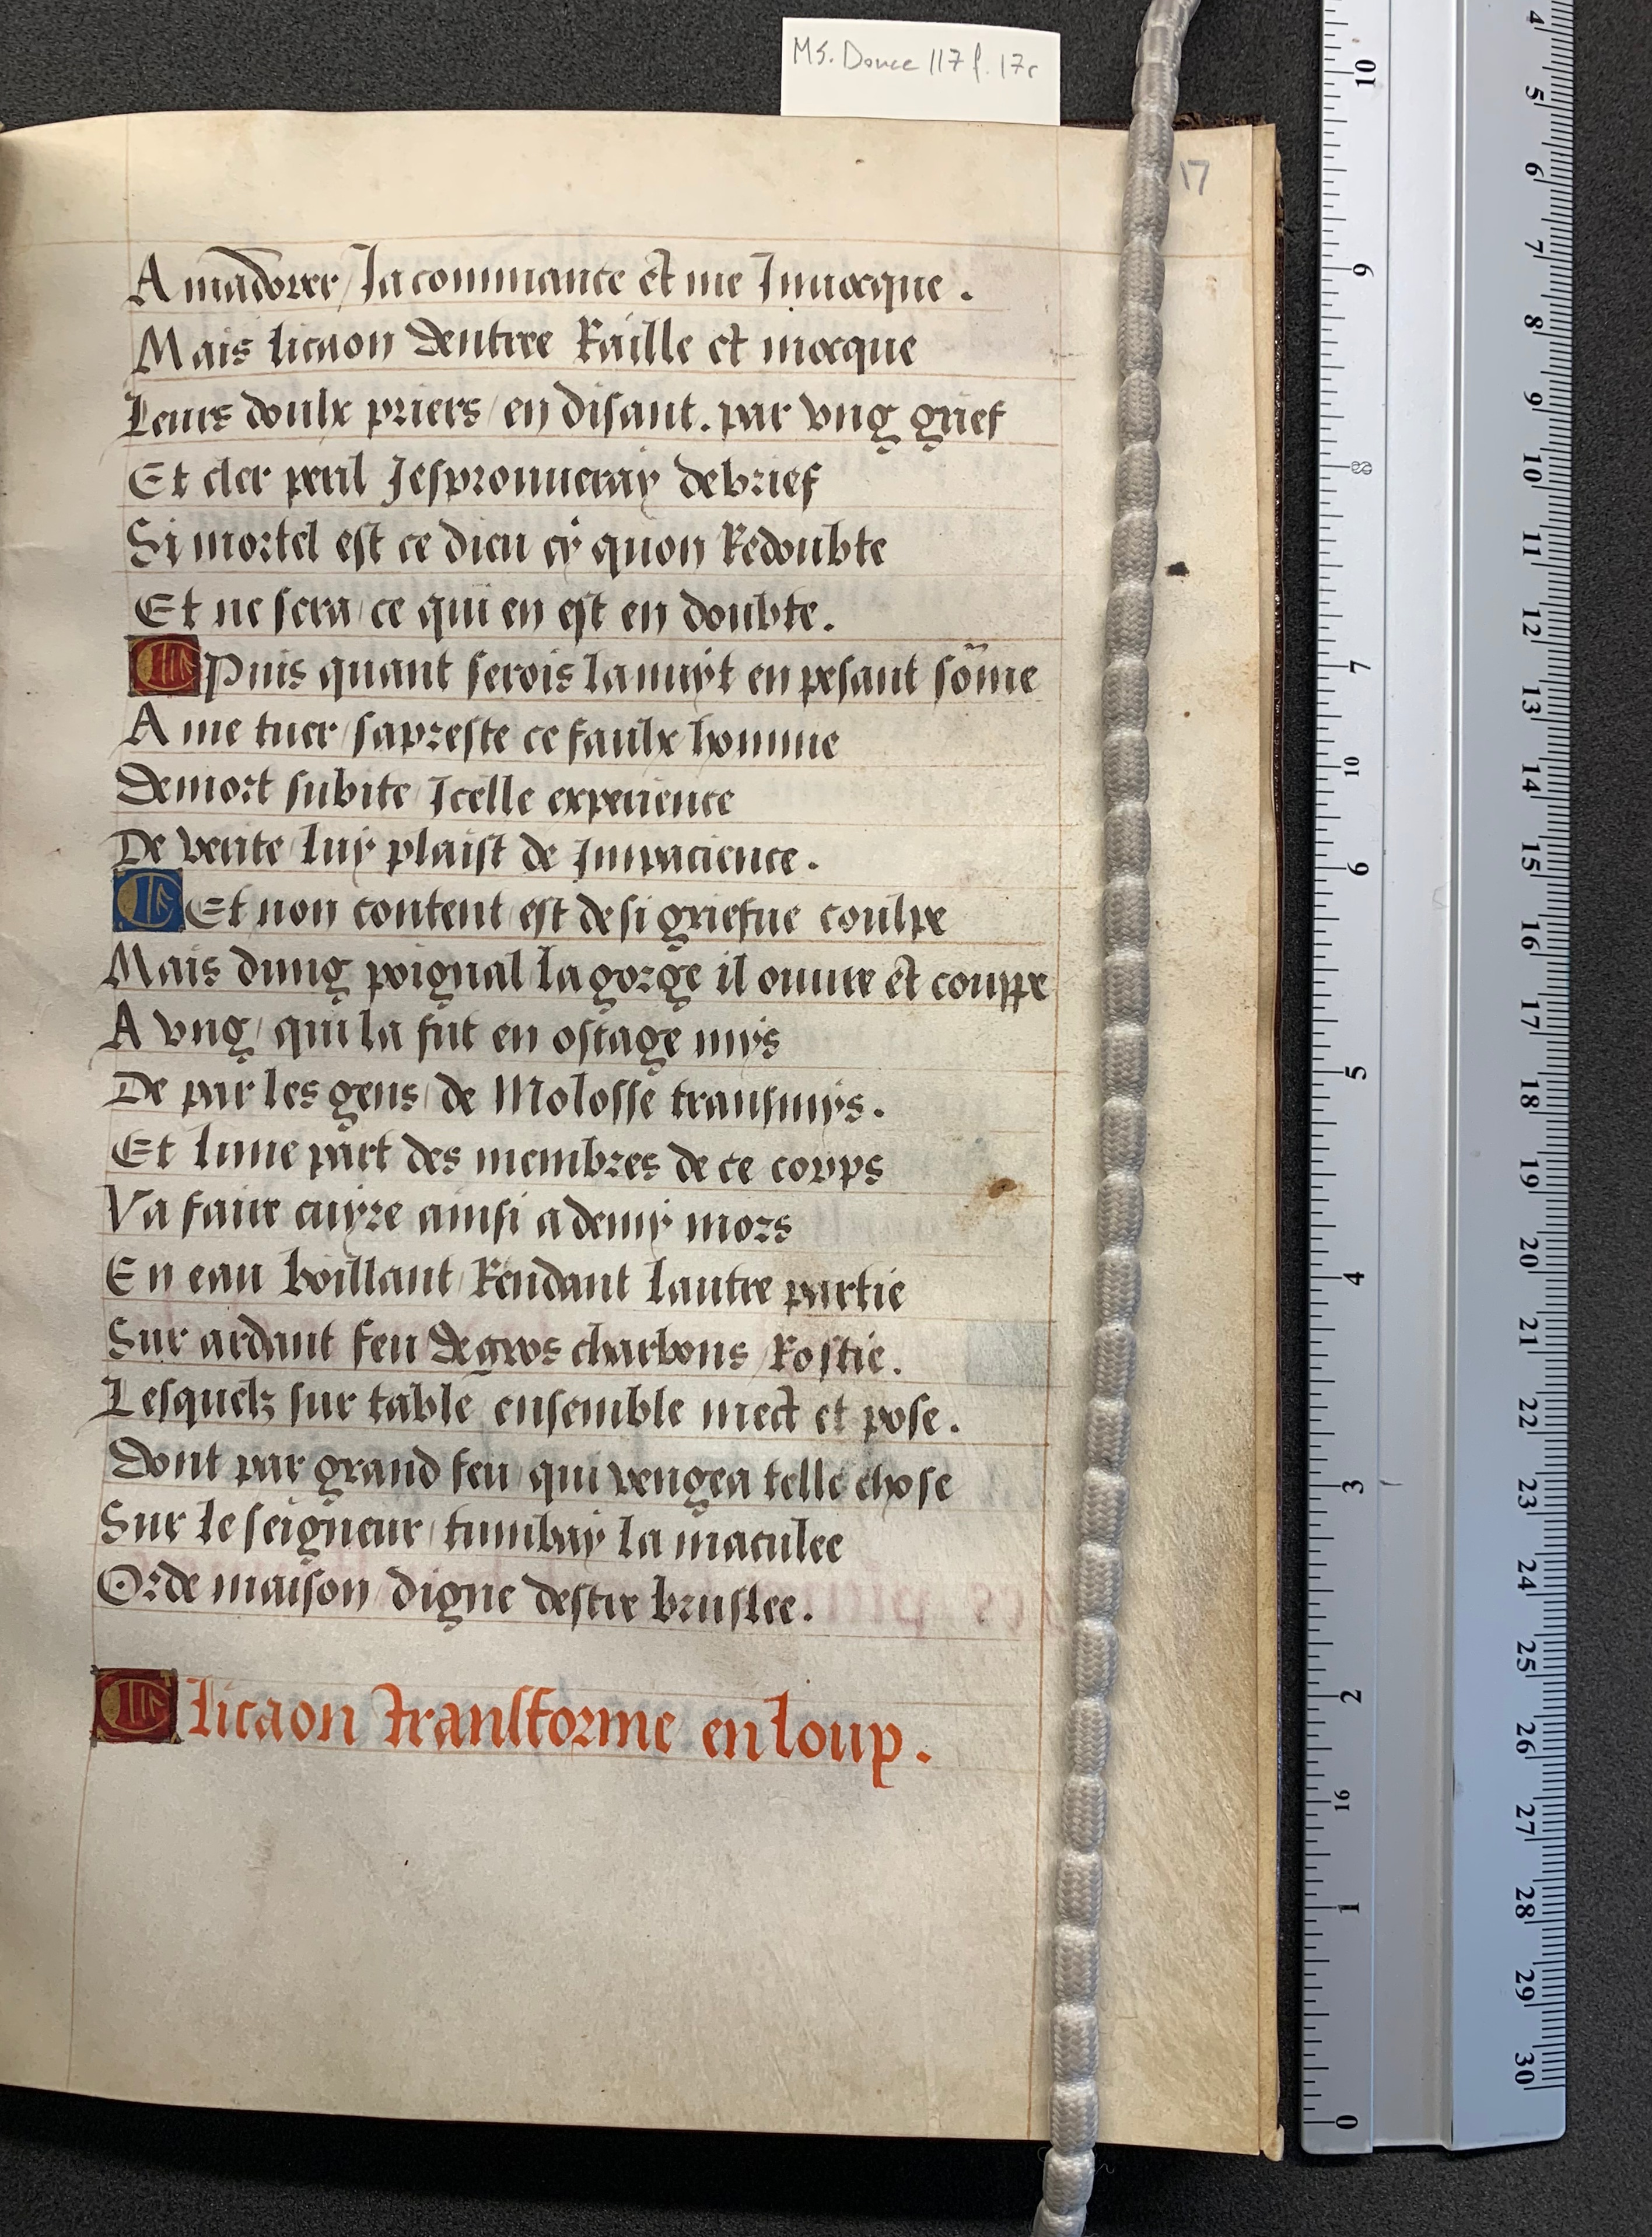 MS. Douce 117 f. 17r
17
A madorer / Ja commance et me Inuocque .
Mais licaon dentree Raille et mocque
Leurs doulx priers / en disant . par vng grief
Et cler peril Jesprouueray de brief
Si mortel est ce dieu cy quon Redoubte
Et ne sera / ce qui en est en doubte .
Puis quant serois la nuyt en pesant sõme
A me tuer / sapreste ce faulx homme
De mort subite / Icelle experience
De verite / luy plaist de Impacience .
Et non content / est de si griefue coulpe
Mais dung poignal / la gorge il ouure et couppe
A vng / qui la fut en ostage mys
De par les gens / de Molosse transmys .
Et lune part des membres de ce corps
Va faire cuyre ainsi a demy mors
En eau boillant / Rendant lautre partie
Sur ardant feu de gros charbons / Rostie .
Lesquelz sur table ensemble mect et pose .
Dont par grand feu / qui vengea telle chose
Sur le seigneur / tumbay la maculee
Orde maison / digne destre bruslee .
licaon transforme en loup .
10
9
8
7
10
6
5
4
3
2
16
1
0
4
5
6
7
8
9
10
11
12
13
14
15
16
17
18
19
20
21
22
23
24
25
26
27
28
29
30